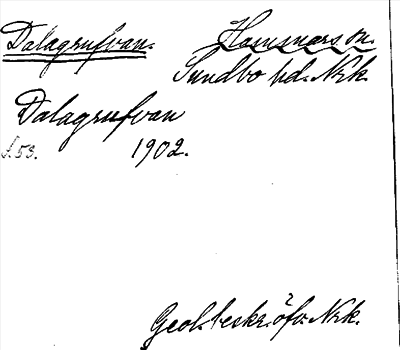 Dalagrufvan. Hammars sn.
Sundbo hd. Nrk.
Dalagrufvan
s. 53. 1902.
Geol. beskr. öfv. Nrk.